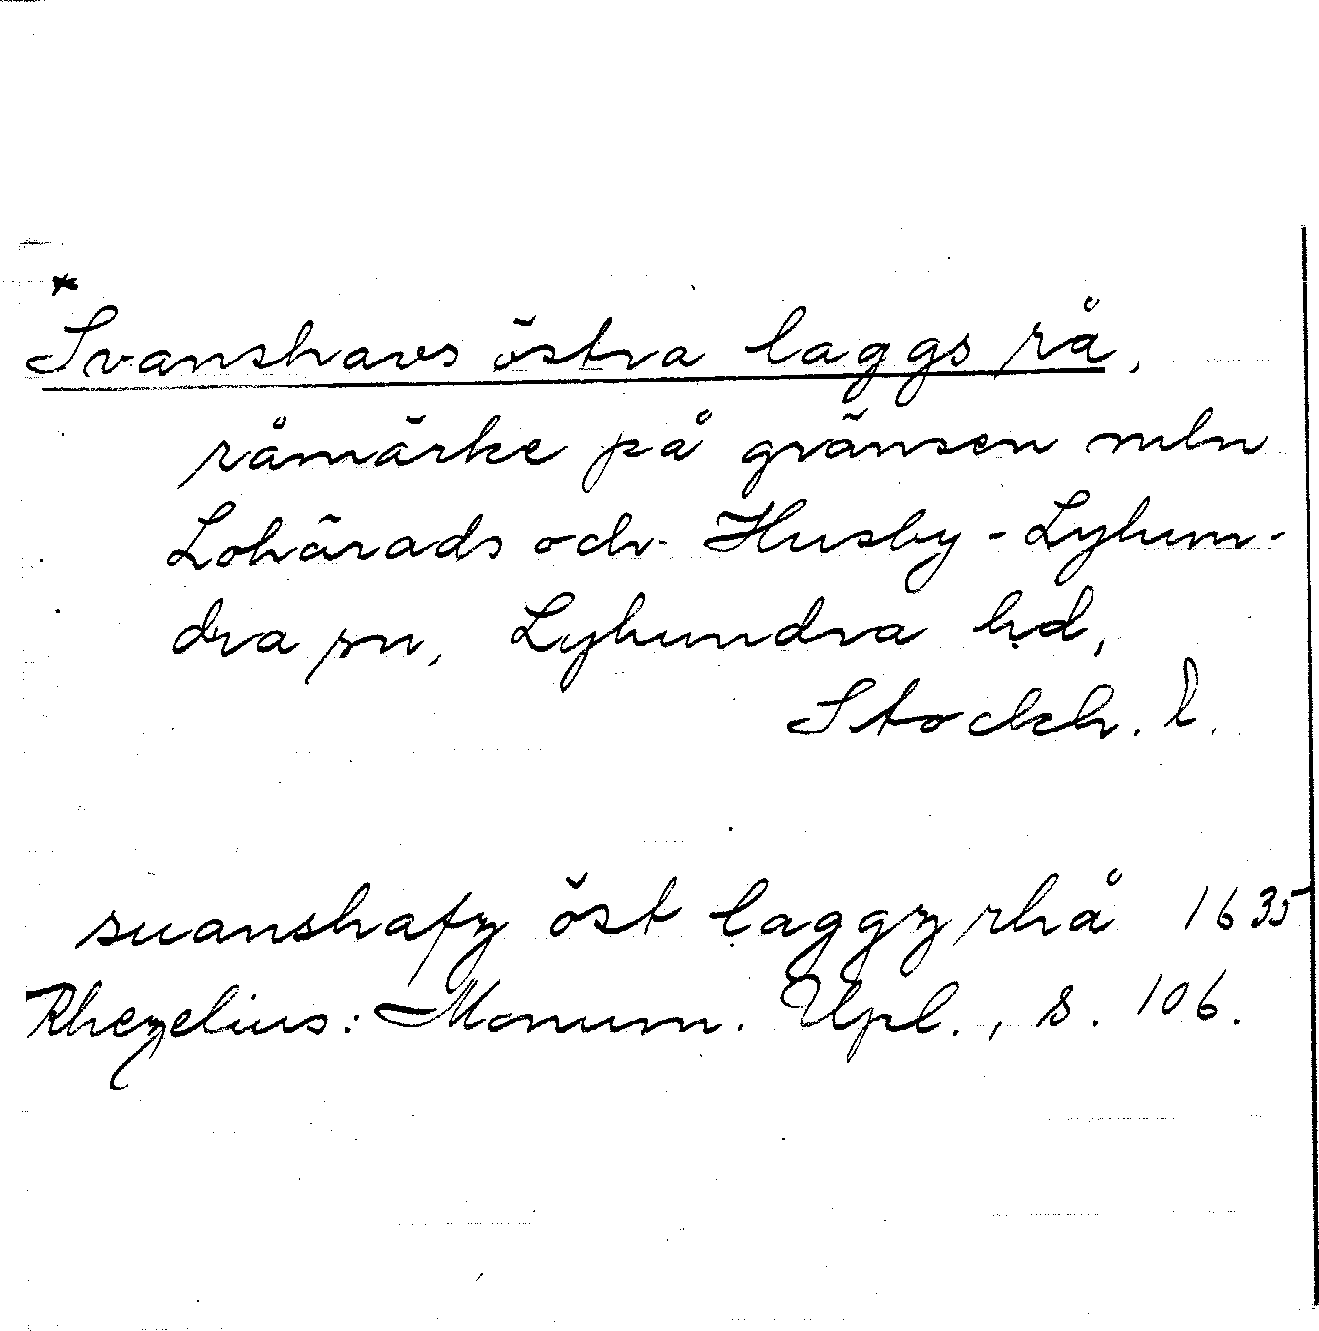 *
Svanshavs östra laggs rå,
råmärke på gränsen mln
Lohärads och Husby-Lyhun-
dra sn, Lyhundra hd,
Stockh. l.
suanshafz öst laggz rhå 1635
Rhezelius: Monum. Upl., s. 106.